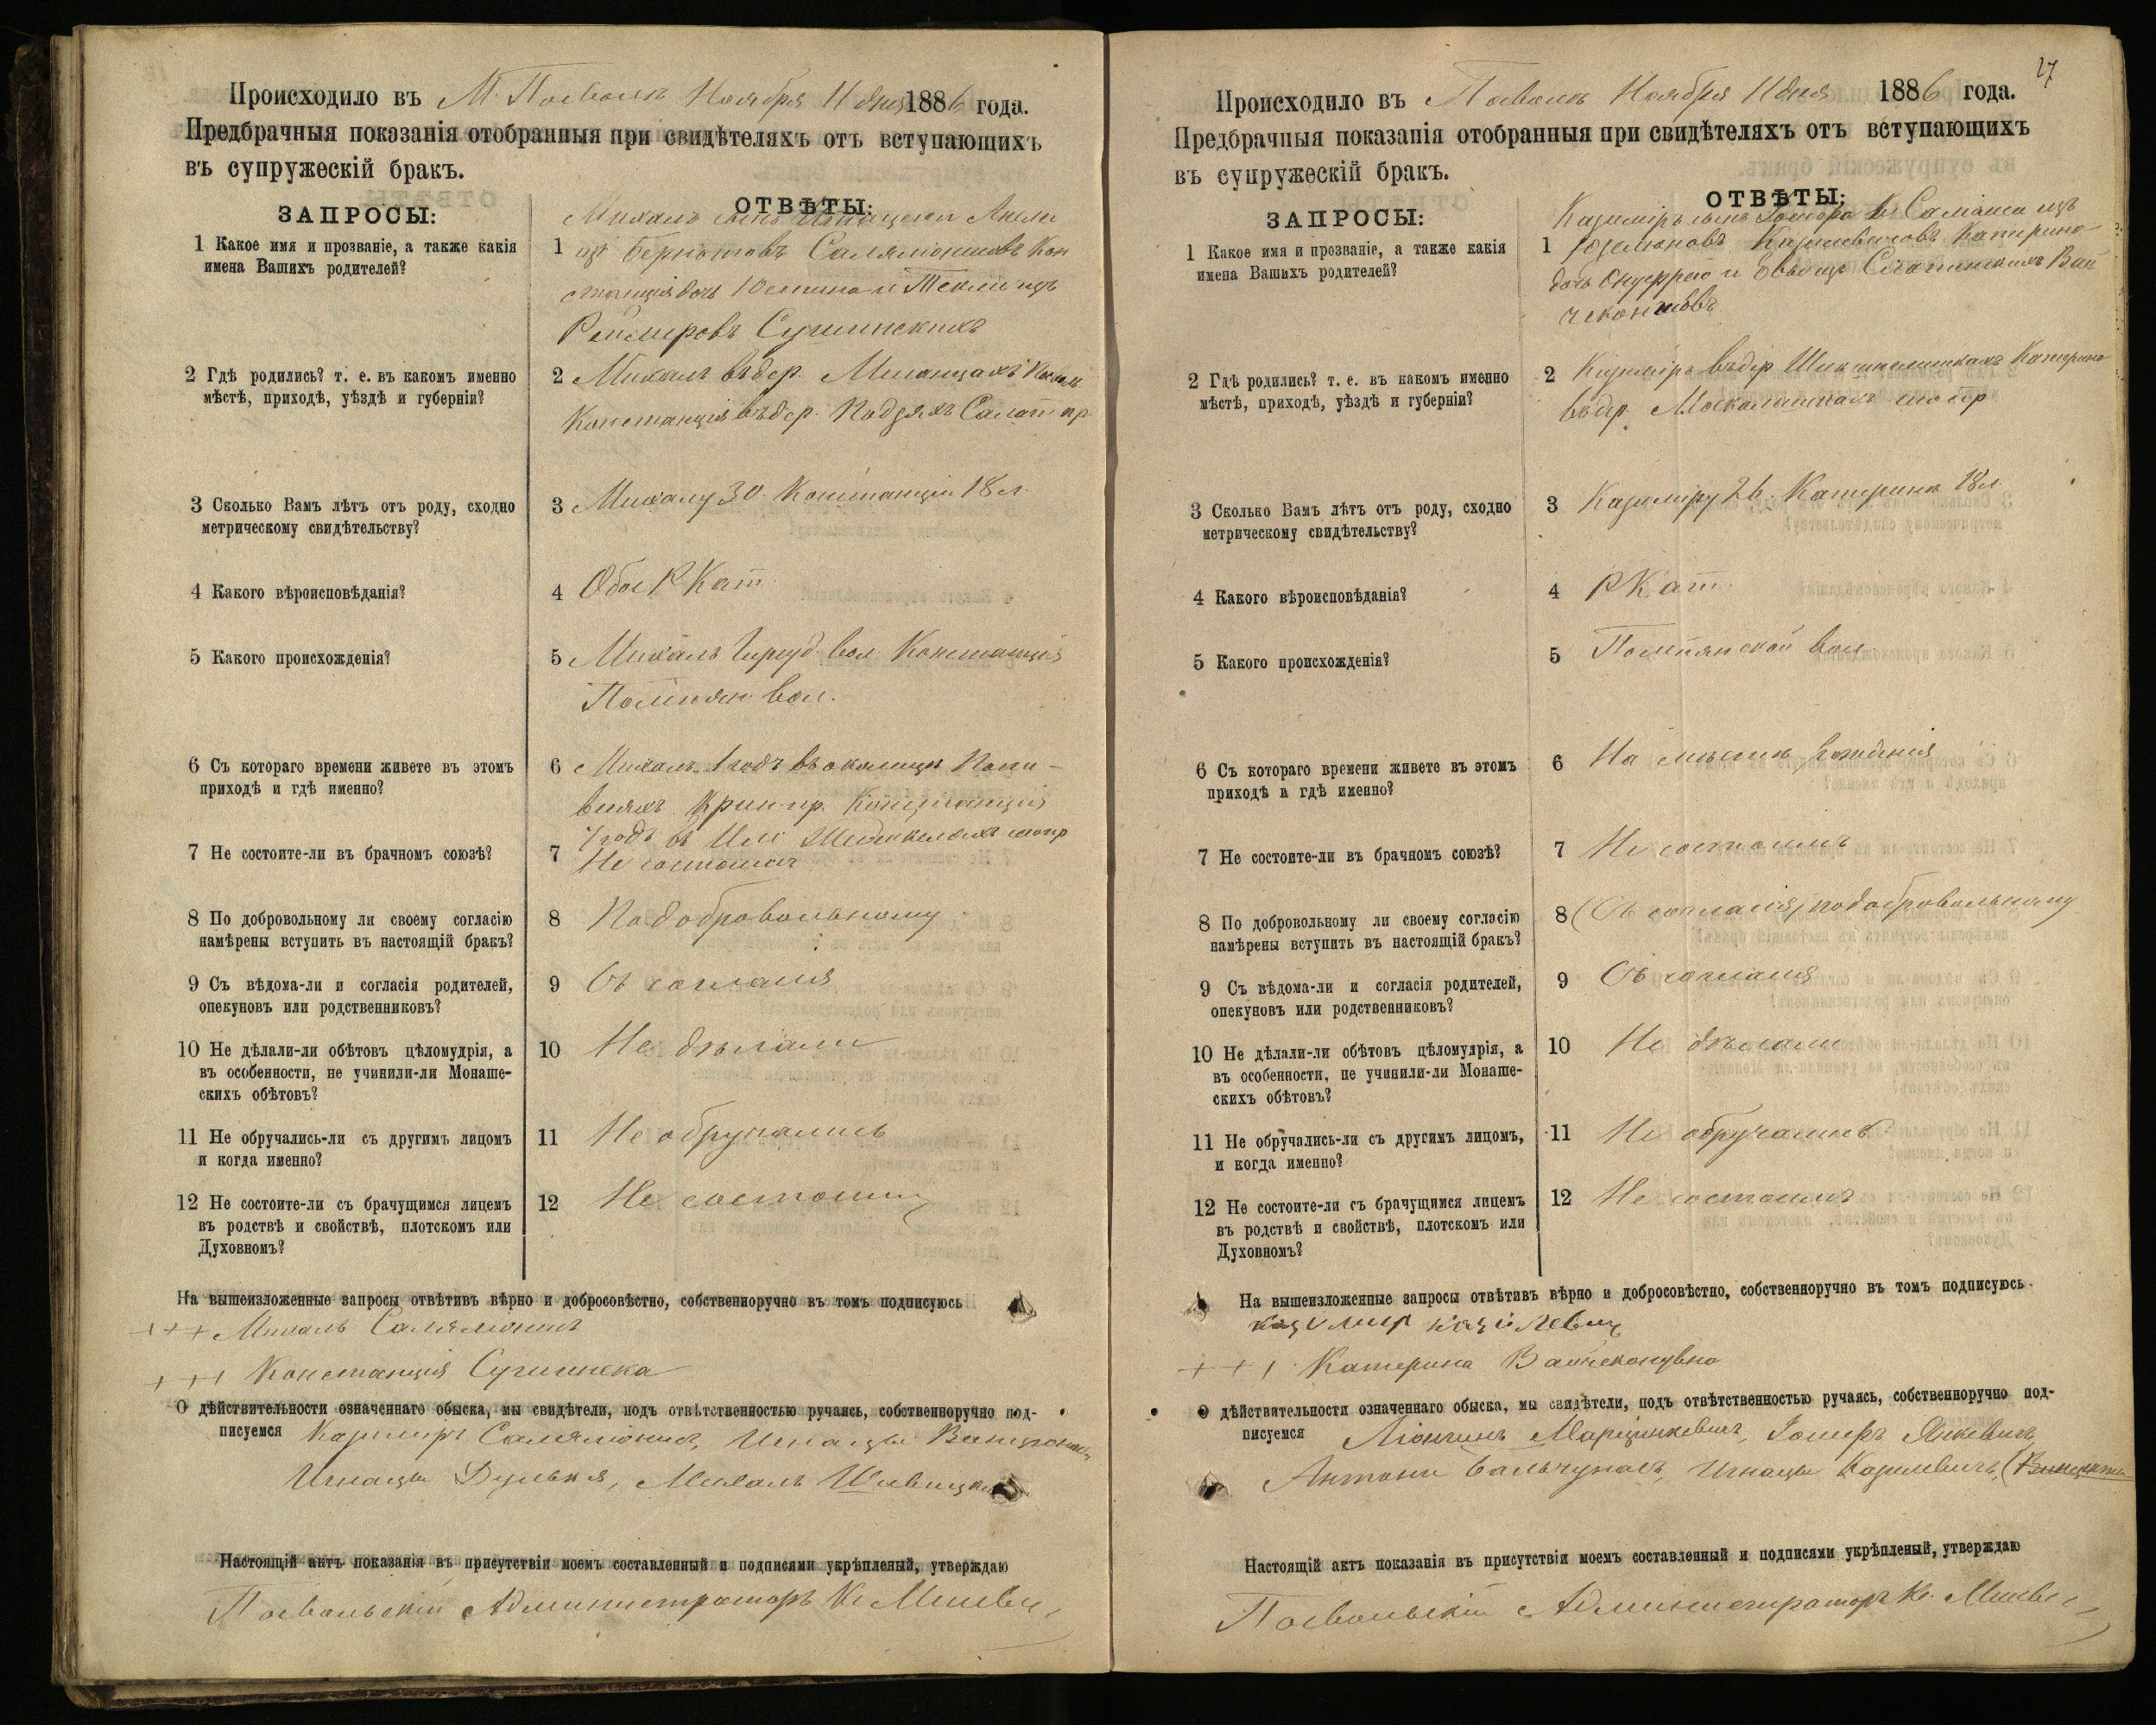 Происходило въ М Посволь Ноября 11 дня 1886 года.
Предбрачныя показанія отобранныя при свидѣтеляхъ отъ вступающихъ
въ супружескій бракъ.
ЗАПРОСЫ:
ОТВѢТЫ:
1 Какое имя и прозваніе, а также какія
имена Вашихъ родителей?
1 Михаль сынъ Игнацего Анели
изъ Бернотовъ Салямоновъ Кон
станція дочь Юстина и Текли изъ
Реймеровъ Сугинскихъ
2 Гдѣ родились? т. е. въ какомъ именно
мѣстѣ, приходѣ, уѣздѣ и губерніи?
2 Михаль въ дер.
Констанція въ дер. Салат пр
3 Сколько Вамъ лѣтъ отъ роду, сходно
метрическому свидѣтельству?
3 Михалу 30. Констанціи 18 л.
4 Какого вѣроисповѣданія?
4 Обое Р Кат
5 Какого происхожденія?
5 Михаль вол Констанція
Помпян вол.
6 Съ котораго времени живете въ этомъ
приходѣ и гдѣ именно?
6 Михаль 1 годъ въ околицы
Крин пр. Констанція
1 годъ въ
7 Не состоите-ли въ брачномъ союзѣ?
7 Не состоимъ
8 По добровольному ли своему согласію
намѣрены вступить въ настоящій бракъ?
8 По добровольному
9 Съ вѣдома-ли и согласія родителей,
опекуновъ или родственниковъ?
9 Съ согласія
10 Не дѣлали-ли обѣтовъ цѣломудрія, а
въ особенности, не учинили-ли Монаше-
скихъ обѣтовъ?
10 Не дѣлали
11 Не обручались-ли съ другимъ лицомъ
и когда именно?
11 Не обручались
12 Не состоите-ли съ брачущимся лицемъ
въ родствѣ и свойствѣ, плотскомъ или
Духовномъ?
12 Не состоимъ
На вышеизложенные запросы отвѣтивъ вѣрно и добросовѣстно, собственноручно въ томъ подписуюсь
+++ Михаль Салямонъ
+++ Констанція Сугинска
О дѣйствительности означеннаго обыска, мы свидѣтели, подъ отвѣтственностью ручаясь, собственноручно под-
писуемся Казимиръ Салямонъ, Игнацы
Игнацы Дулькя, Михаль
Настоящій актъ показанія въ присутствіи моемъ составленный и подписями укрѣпленый, утверждаю
Посвольскій Администраторъ К.
27
Происходило въ Посволь Ноября 11 дня 1886 года.
Предбрачныя показанія отобранныя при свидѣтеляхъ отъ вступающихъ
въ супружескій бракъ.
ЗАПРОСЫ:
ОТВѢТЫ:
1 Какое имя и прозваніе, а также какія
имена Вашихъ родителей?
1 Казиміръ сынъ изъ
Катерина
дочь Онуфрего и Евы изъ
2 Гдѣ родились? т. е. въ какомъ именно
мѣстѣ, приходѣ, уѣздѣ и губерніи?
2 Казиміръ въ дер Катерина
въ дер.
3 Сколько Вамъ лѣтъ отъ роду, сходно
метрическому свидѣтельству?
3 Казиміру 26. Катеринѣ 18 л
4 Какого вѣроисповѣданія?
4 Р Кат.
5 Какого происхожденія?
5 Помпянской вол.
6 Съ котораго времени живете въ этомъ
приходѣ и гдѣ именно?
6 На мѣстѣ рожденія
7 Не состоите-ли въ брачномъ союзѣ?
7 Не состоимъ
8 По добровольному ли своему согласію
намѣрены вступить въ настоящій бракъ?
8 (Съ согласія) по добровольному
9 Съ вѣдома-ли и согласія родителей,
опекуновъ или родственниковъ?
9 Съ согласія
10 Не дѣлали-ли обѣтовъ цѣломудрія, а
въ особенности, не учинили-ли Монаше-
скихъ обѣтовъ?
10 Не дѣлали
11 Не обручались-ли съ другимъ лицомъ,
и когда именно?
11 Не обручались
12 Не состоите-ли съ брачущимся лицемъ
въ родствѣ и свойствѣ, плотскомъ или
Духовномъ?
12 Не состоимъ
На вышеизложенные запросы отвѣтивъ вѣрно и добросовѣстно, собственноручно въ томъ подписуюсь
+++ Катерина Вайчеконувна
О дѣйствительности означеннаго обыска, мы свидѣтели, подъ отвѣтственностью ручаясь, собственноручно под-
писуемся Марцинкевичъ, Янкевичъ,
Антони Бальчунасъ, Игнацы Казилевичъ,
Настоящій актъ показанія въ присутствіи моемъ составленный и подписями укрѣпленый, утверждаю
Посвольскій Администраторъ К.